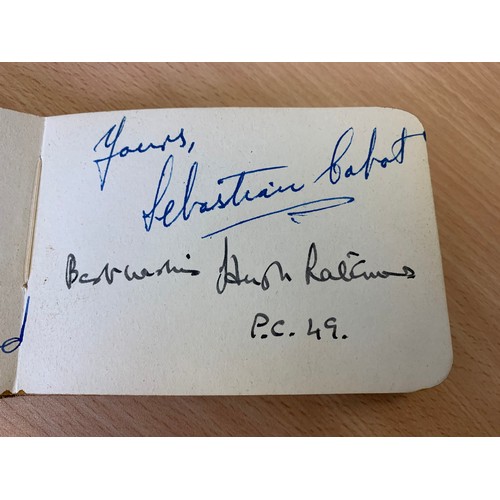 Yours,
Sebastian Cabot
Best wishes Hugh Latimer
P.C. 49.